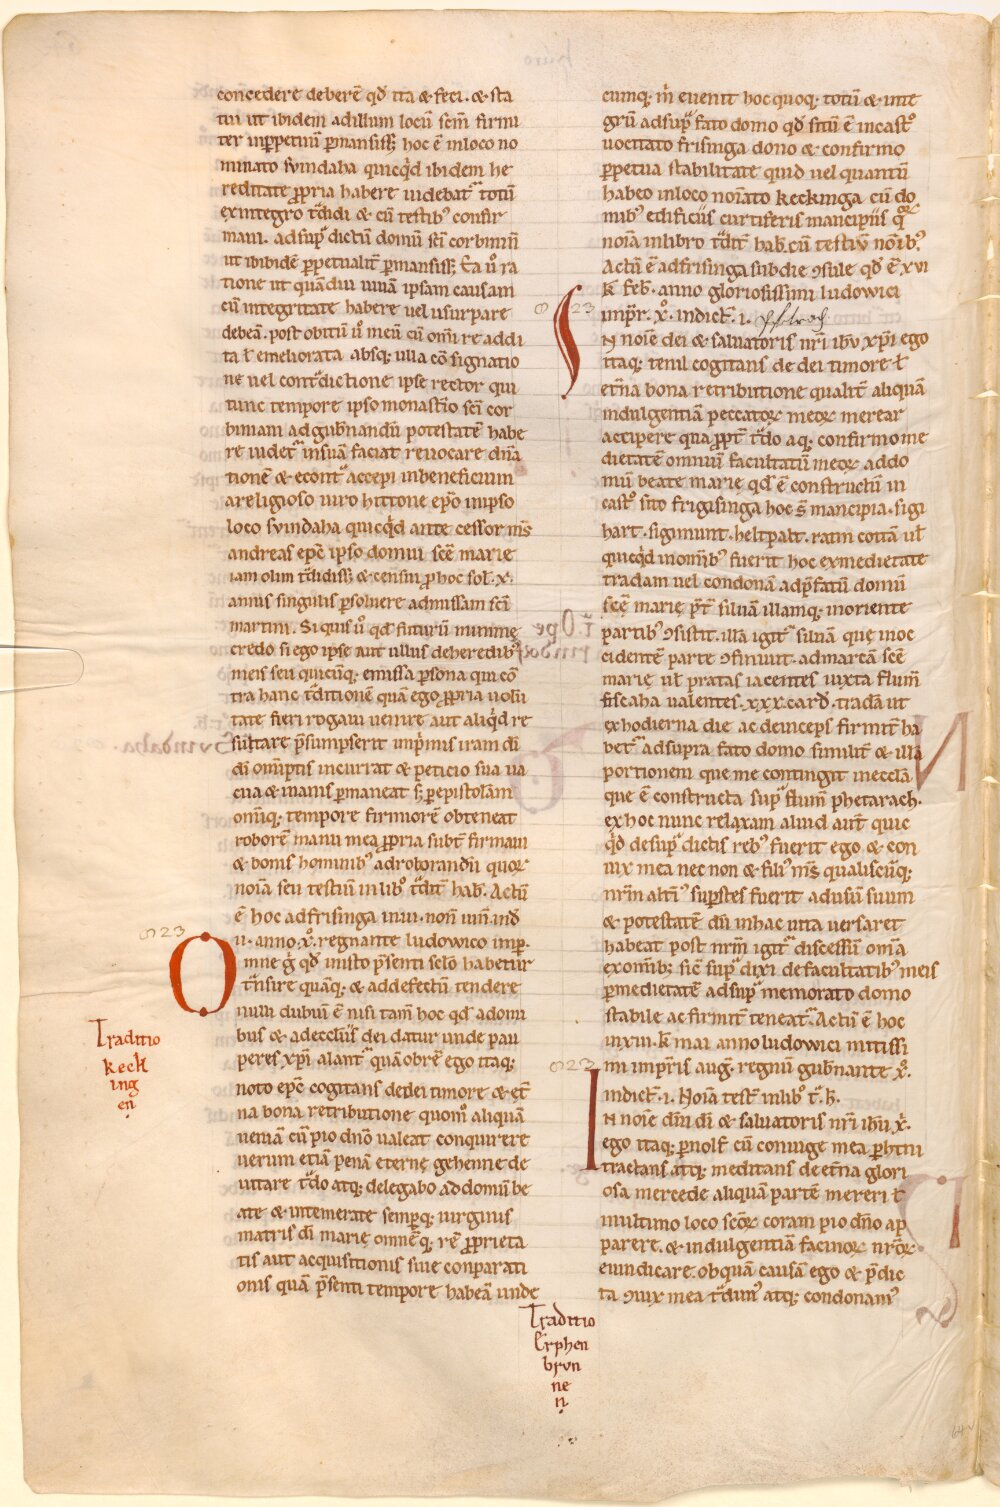 concedere deberē qđ ita & feci. & sta
tui ut ibidem ad illum locū scīm firmi
ter inꝑpetuū ꝑmansiss; hoc ē in loco no
minato svindaha quicqd ibidem he
reditate ꝓpria habere videbat totū
ex integro tdidi & cū testib' confir
mavi. ad sup dictū domū sci corbiniani
ut ibibidē ꝑpetualit ꝑmansiss; Ea ū ra
tione ut quādiu vivā ipsam causam
cū integritate habere vel usurpare
debeā. post obitū ū meū cū omi re addi
ta ł emeliorata absq; ulla cōsignatio
ne vel contdictione ipse rector qui
tunc tempore ipso monastio sci cor
biniani ad gubnandū potestatē habe
re videt in suā faciat revocare dnā
tionē & econt accepi in beneficium
a religioso viro hittone epō in ipso
loco svindaha quicqd ante cessor ms
andreas epē ipso domui scē marie
iam olim tdidiss; & censū ꝓ hoc sol. x.
annis singulis ꝑsolvere ad missam sci
martini. Si quis ū qđ futurū minime
credo si ego ipse aut ullus de heredib'
meis seu quicūq; emissa ꝑsona qui cō
tra hanc tditionē quā ego ꝓpria volū
tate fieri rogavi venire aut aliqd re
fultare psumpserit impmis iram di
di omiptis incurrat & peticio sua va
cua & inanis ꝑmaneat s; ꝑ epistolam
omiq; tempore firmiorē obteneat
roborē manu mea ꝓpria subt firmavi
& bonis hominib' ad roborandū quoꝝ
noīa seu testiū in lib' tdit hab. Actū
ē hoc ad frisinga inui. non iuni ind
ii. anno x̊. regnante ludowico imp.
Omne g qđ in isto psenti sclo habetur
tnsire quāq; & ad defectū tendere
nulli dubiū ē nisi tam hoc qđ adomi
bus & adecclius dei datur unde pau
peres xpi alant quā obrē ego itaq;
noto epē cogitans de dei timore & et
na bona retributione quom aliquā
veniā cū pio dno valeat conquirere
verum etiā penā eterne gehenne de
vitare tdo atq; delegabo ad domū be
ate & intemerate sempq; virginis
matris di marie omnēq; rē ꝓprieta
tis aut acquisitionis sive conparati
onis quā psenti tempore habeā unde
Traditio
keck
ing
en
cumq; m evenit hoc quoq; totū & inte
grū ad sup fato domo qđ sitū ē in casto
vocitato frisinga dono & confirmo
ꝑpetua stabilitate quid vel quantū
habeo in loco noīato keckinga cū do
mib' edificiis curtiferis mancipiis qꝝ
noīa in libro tdit hab. cū testiū noīb'.
Actū ē ad frisinga sub die ꝯsule qđ ē xvi
k feb. anno gloriosissimi ludowici
impr. x̊. indict. i.
IN noīe dei & salvatoris nri ihu xpi ego
itaq; temil cogitans de dei timore ł
etna bona retributione qualit aliquā
indulgentiā peccatoꝝ meoꝝ merear
accipere qua ꝓpt tdo aq; confirmo me
dietatē omniū facultatū meoꝝ ad do
mū beate marie qđ ē constructū in
casto sito frigisinga hoc s mancipia. sigi
hart. sigimunt. heltpalt. ratin cotta ul
quicqd in omīb' fuerit hoc ex medietate
tradam vel condonā ad pfatū domū
sce marie pt silvā illamq; in oriente
partib' ꝯsistit. illā igit silvā que in oc
cidente parte ꝯfiniut. ad marcā scē
marie ul pratas iacentes iuxta flum
fiscaha valentes xxx. card. tradā ut
ex hodierna die ac deinceps firmit ha
bet ad supra fato domo similit & illā
portionem que me contingit in ecclā
que ē constructa sup flum phetarach.
ex hoc nunc relaxam aliud aut quic
qd de sup dictis reb' fuerit ego & con
iux mea nec non & fili' ms qualiscūq;
nrm alti' supstes fuerit ad usū suum
& potestatē dū in hac vita versaret
habeat post nrm igit discessū omīa
ex omīb; sic sup dixi de facultatib' meis
ꝑ medietatē ad sup memorato domo
stabile ac firmit teneat. Actū ē hoc
in xiii. k mai anno ludowici mitissi
mi impris aug. regnū gubnante x̊.
indict. i. Noīa test in lib' t. h.
IN noīe dni di & salvatoris nri ihu x.
ego itaq; ꝑnolf cū coniuge mea ꝑhtni
tractans atq; meditans de etna glori
osa mercede aliquā partē mereri ł
in ultimo loco scoꝝ coram pio dno ap
parere. & indulgentiā facinoꝝ nroꝝ
evindicare. ob quā causā ego & pdic
ta ꝯiux mea tdim' atq; condonam'
Traditio
Erphen
brvn
ne
n